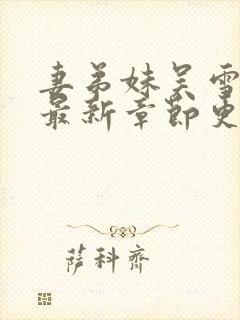 妻弟妹吴雪
最新章节更
萨科齐